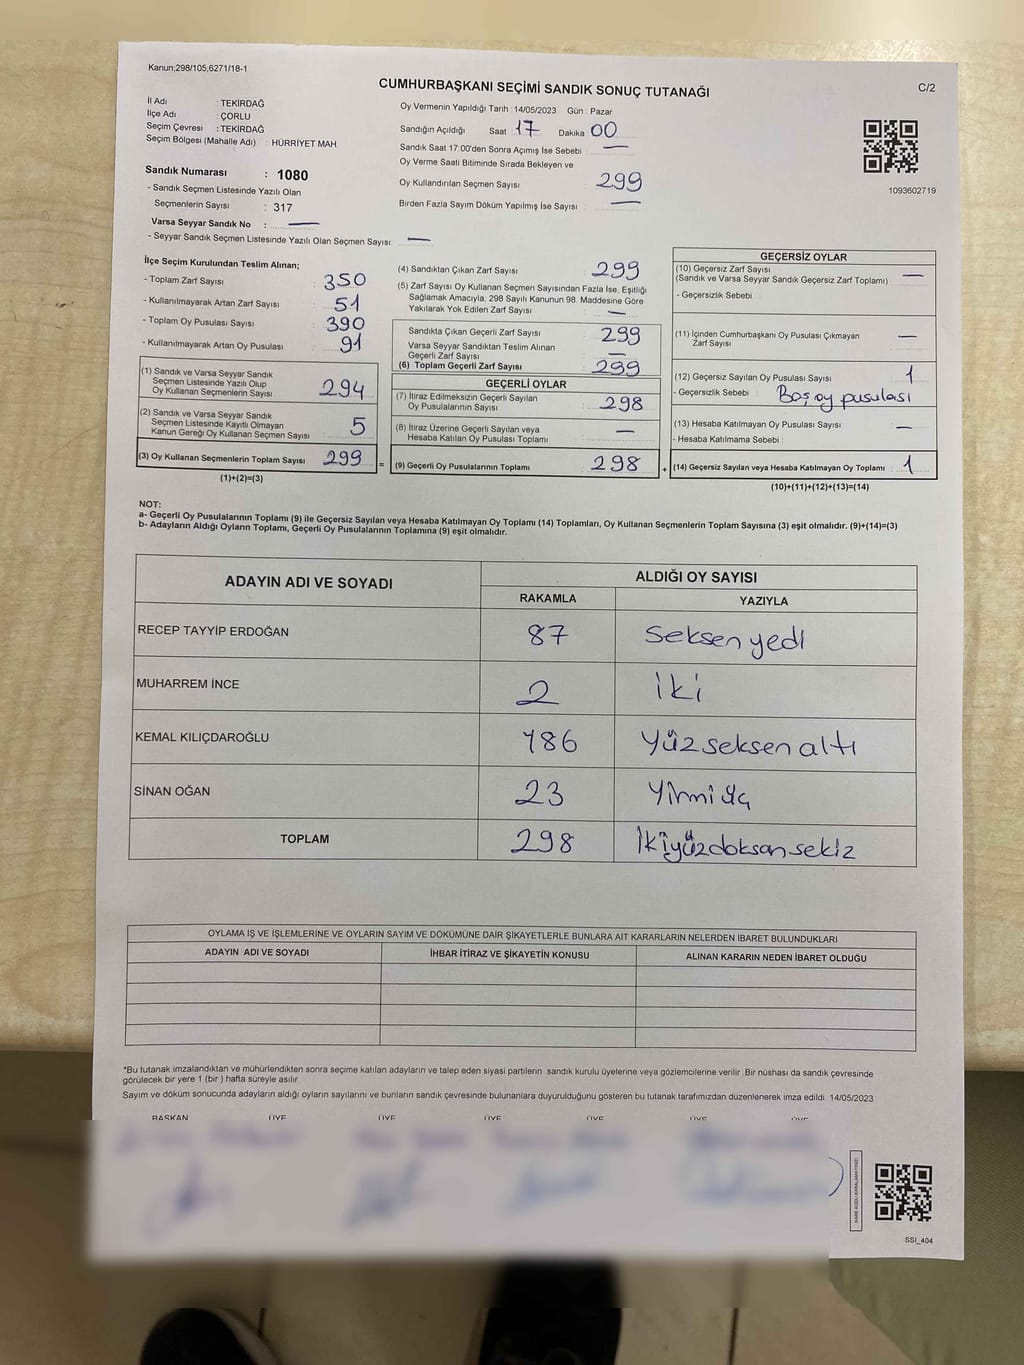 Kanun;298/105;6271/18-1
CUMHURBAŞKANI SEÇİMİ SANDIK SONUÇ TUTANAĞI
C/2
İl Adı : TEKİRDAĞ
İlçe Adı : ÇORLU
Seçim Çevresi : TEKİRDAĞ
Seçim Bölgesi (Mahalle Adı) : HÜRRİYET MAH.
Sandık Numarası : 1080
- Sandık Seçmen Listesinde Yazılı Olan
Seçmenlerin Sayısı : 317
Varsa Seyyar Sandık No : —
- Seyyar Sandık Seçmen Listesinde Yazılı Olan Seçmen Sayısı: —
Oy Vermenin Yapıldığı Tarih : 14/05/2023 Gün : Pazar
Sandığın Açıldığı Saat 17 Dakika 00
Sandık Saat 17:00'den Sonra Açımış İse Sebebi —
Oy Verme Saati Bitiminde Sırada Bekleyen ve
Oy Kullandırılan Seçmen Sayısı 299
Birden Fazla Sayım Döküm Yapılmış İse Sayısı —
1093602719
İlçe Seçim Kurulundan Teslim Alınan;
- Toplam Zarf Sayısı : 350
- Kullanılmayarak Artan Zarf Sayısı : 51
- Toplam Oy Pusulası Sayısı : 390
- Kullanılmayarak Artan Oy Pusulası : 91
(1) Sandık ve Varsa Seyyar Sandık
Seçmen Listesinde Yazılı Olup
Oy Kullanan Seçmenlerin Sayısı : 294
(2) Sandık ve Varsa Seyyar Sandık
Seçmen Listesinde Kayıtlı Olmayan
Kanun Gereği Oy Kullanan Seçmen Sayısı : 5
(3) Oy Kullanan Seçmenlerin Toplam Sayısı : 299
(1)+(2)=(3)
(4) Sandıktan Çıkan Zarf Sayısı : 299
(5) Zarf Sayısı Oy Kullanan Seçmen Sayısından Fazla İse, Eşitliği
Sağlamak Amacıyla; 298 Sayılı Kanunun 98. Maddesine Göre
Yakılarak Yok Edilen Zarf Sayısı : —
Sandıkta Çıkan Geçerli Zarf Sayısı : 299
Varsa Seyyar Sandıktan Teslim Alınan
Geçerli Zarf Sayısı : —
(6) Toplam Geçerli Zarf Sayısı : 299
GEÇERLİ OYLAR
(7) İtiraz Edilmeksizin Geçerli Sayılan
Oy Pusulalarının Sayısı : 298
(8) İtiraz Üzerine Geçerli Sayılan veya
Hesaba Katılan Oy Pusulası Toplamı : —
= (9) Geçerli Oy Pusulalarının Toplamı : 298
GEÇERSİZ OYLAR
(10) Geçersiz Zarf Sayısı
(Sandık ve Varsa Seyyar Sandık Geçersiz Zarf Toplamı) : —
- Geçersizlik Sebebi :
(11) İçinden Cumhurbaşkanı Oy Pusulası Çıkmayan
Zarf Sayısı : —
(12) Geçersiz Sayılan Oy Pusulası Sayısı : 1
- Geçersizlik Sebebi : Boş oy pusulası
(13) Hesaba Katılmayan Oy Pusulası Sayısı : —
- Hesaba Katılmama Sebebi :
+ (14) Geçersiz Sayılan veya Hesaba Katılmayan Oy Toplamı : 1
(10)+(11)+(12)+(13)=(14)
NOT:
a- Geçerli Oy Pusulalarının Toplamı (9) ile Geçersiz Sayılan veya Hesaba Katılmayan Oy Toplamı (14) Toplamları, Oy Kullanan Seçmenlerin Toplam Sayısına (3) eşit olmalıdır. (9)+(14)=(3)
b- Adayların Aldığı Oyların Toplamı, Geçerli Oy Pusulalarının Toplamına (9) eşit olmalıdır.
ADAYIN ADI VE SOYADI
ALDIĞI OY SAYISI
RAKAMLA YAZIYLA
RECEP TAYYİP ERDOĞAN 87 Seksen yedi
MUHARREM İNCE 2 iki
KEMAL KILIÇDAROĞLU 186 Yüz seksen altı
SİNAN OĞAN 23 Yirmi üç
TOPLAM 298 İkiyüzdoksan sekiz
OYLAMA İŞ VE İŞLEMLERİNE VE OYLARIN SAYIM VE DÖKÜMÜNE DAİR ŞİKAYETLERLE BUNLARA AİT KARARLARIN NELERDEN İBARET BULUNDUKLARI
ADAYIN ADI VE SOYADI İHBAR İTİRAZ VE ŞİKAYETİN KONUSU ALINAN KARARIN NEDEN İBARET OLDUĞU
*Bu tutanak imzalandıktan ve mühürlendikten sonra seçime katılan adayların ve talep eden siyasi partilerin sandık kurulu üyelerine veya gözlemcilerine verilir. Bir nüshası da sandık çevresinde
görülecek bir yere 1 (bir ) hafta süreyle asılır.
Sayım ve döküm sonucunda adayların aldığı oyların sayılarını ve bunların sandık çevresinde bulunanlara duyurulduğunu gösteren bu tutanak tarafımızdan düzenlenerek imza edildi. 14/05/2023
BAŞKAN ÜYE ÜYE ÜYE ÜYE ÜYE ÜYE
SSI_404